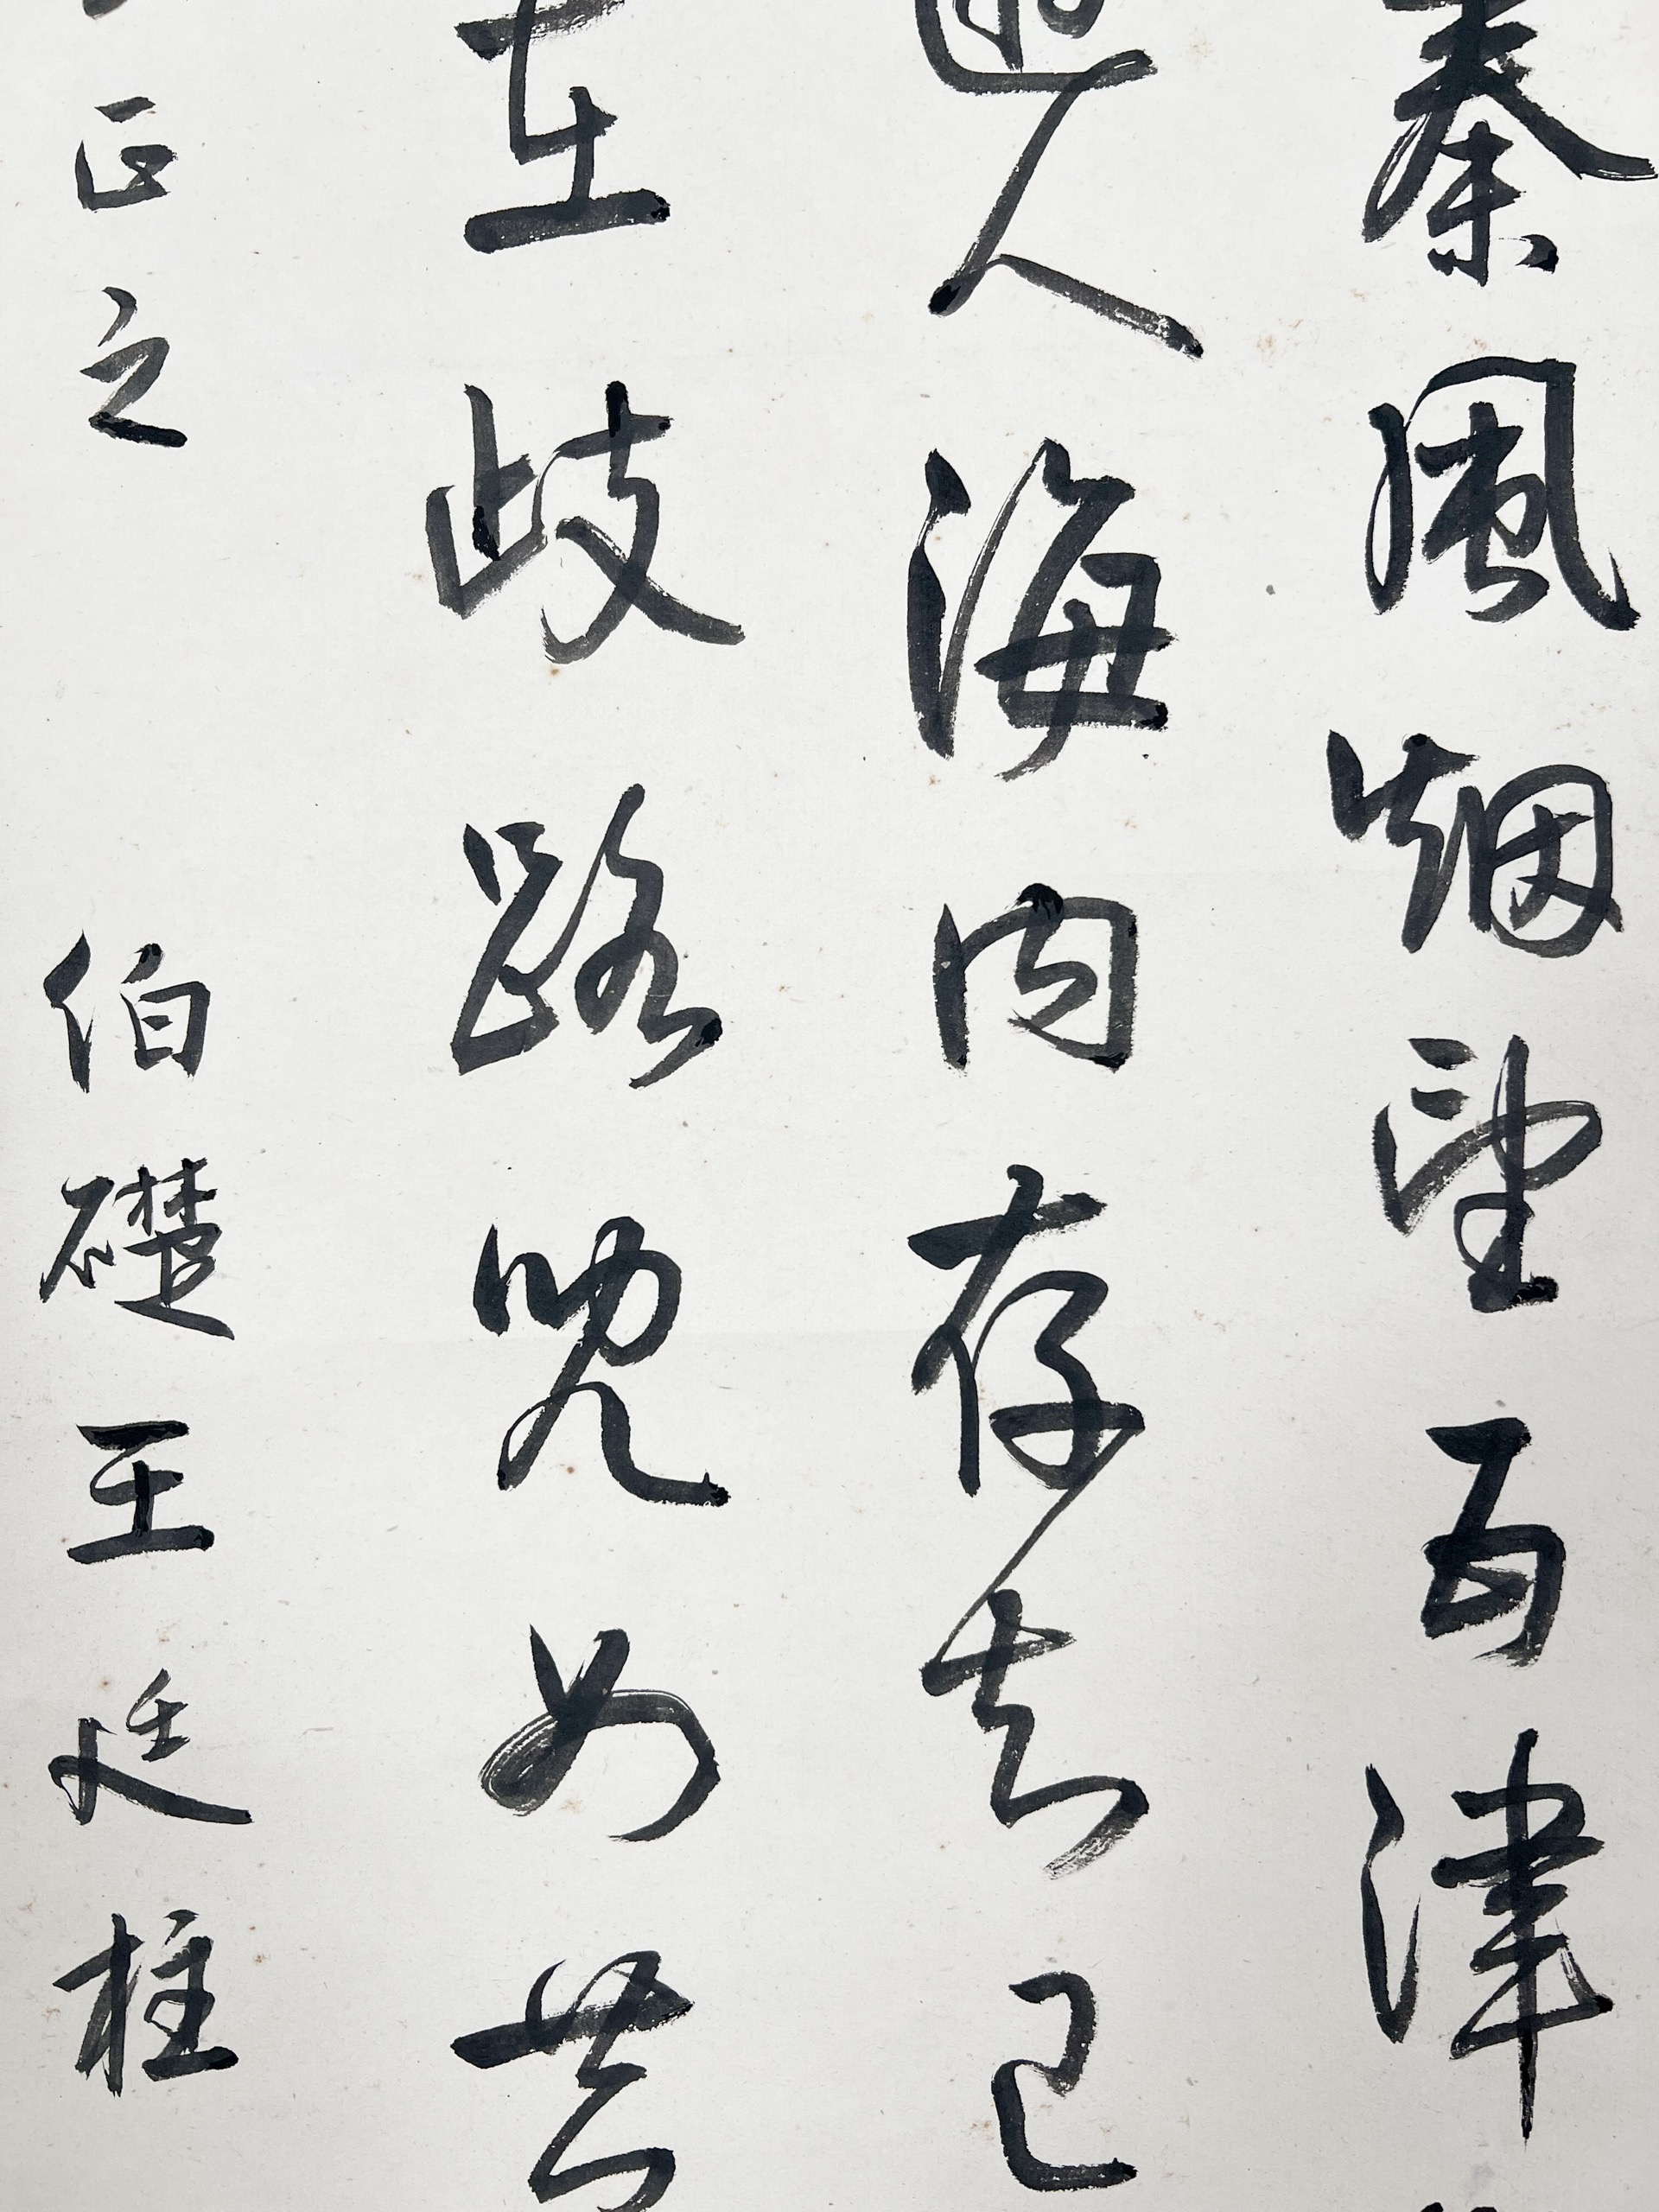 秦風烟望五津
人海内存知己
在歧路兒女共
正之 伯礎王廷柱